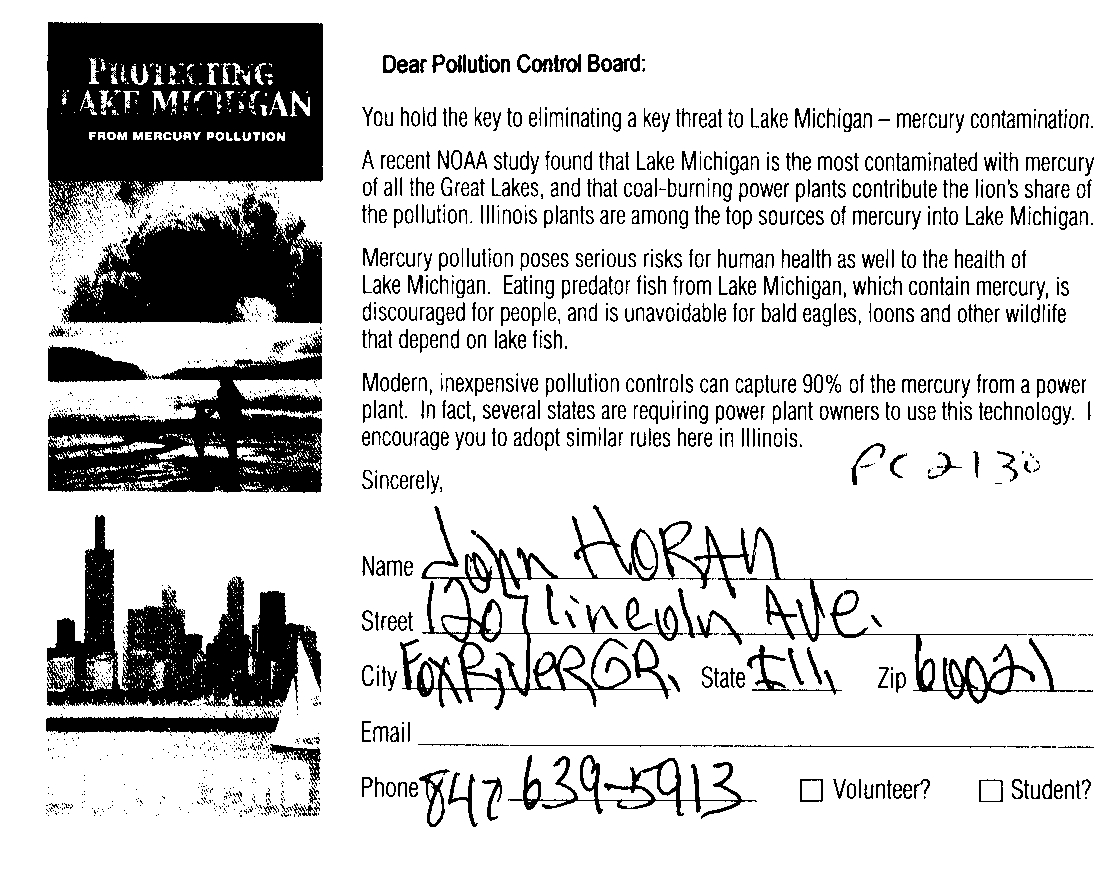 PROTECTING
LAKE MICHIGAN
FROM MERCURY POLLUTION
Dear Pollution Control Board:
You hold the key to eliminating a key threat to Lake Michigan – mercury contamination.
A recent NOAA study found that Lake Michigan is the most contaminated with mercury
of all the Great Lakes, and that coal-burning power plants contribute the lion's share of
the pollution. Illinois plants are among the top sources of mercury into Lake Michigan.
Mercury pollution poses serious risks for human health as well to the health of
Lake Michigan. Eating predator fish from Lake Michigan, which contain mercury, is
discouraged for people, and is unavoidable for bald eagles, loons and other wildlife
that depend on lake fish.
Modern, inexpensive pollution controls can capture 90% of the mercury from a power
plant. In fact, several states are requiring power plant owners to use this technology. I
encourage you to adopt similar rules here in Illinois.
PC 2130
Sincerely,
Name John HORAN
Street 1207 lincoln AVe.
City FoxRiVeRGR. State Ill. Zip 60021
Email
Phone 847 639-5913 Volunteer? Student?